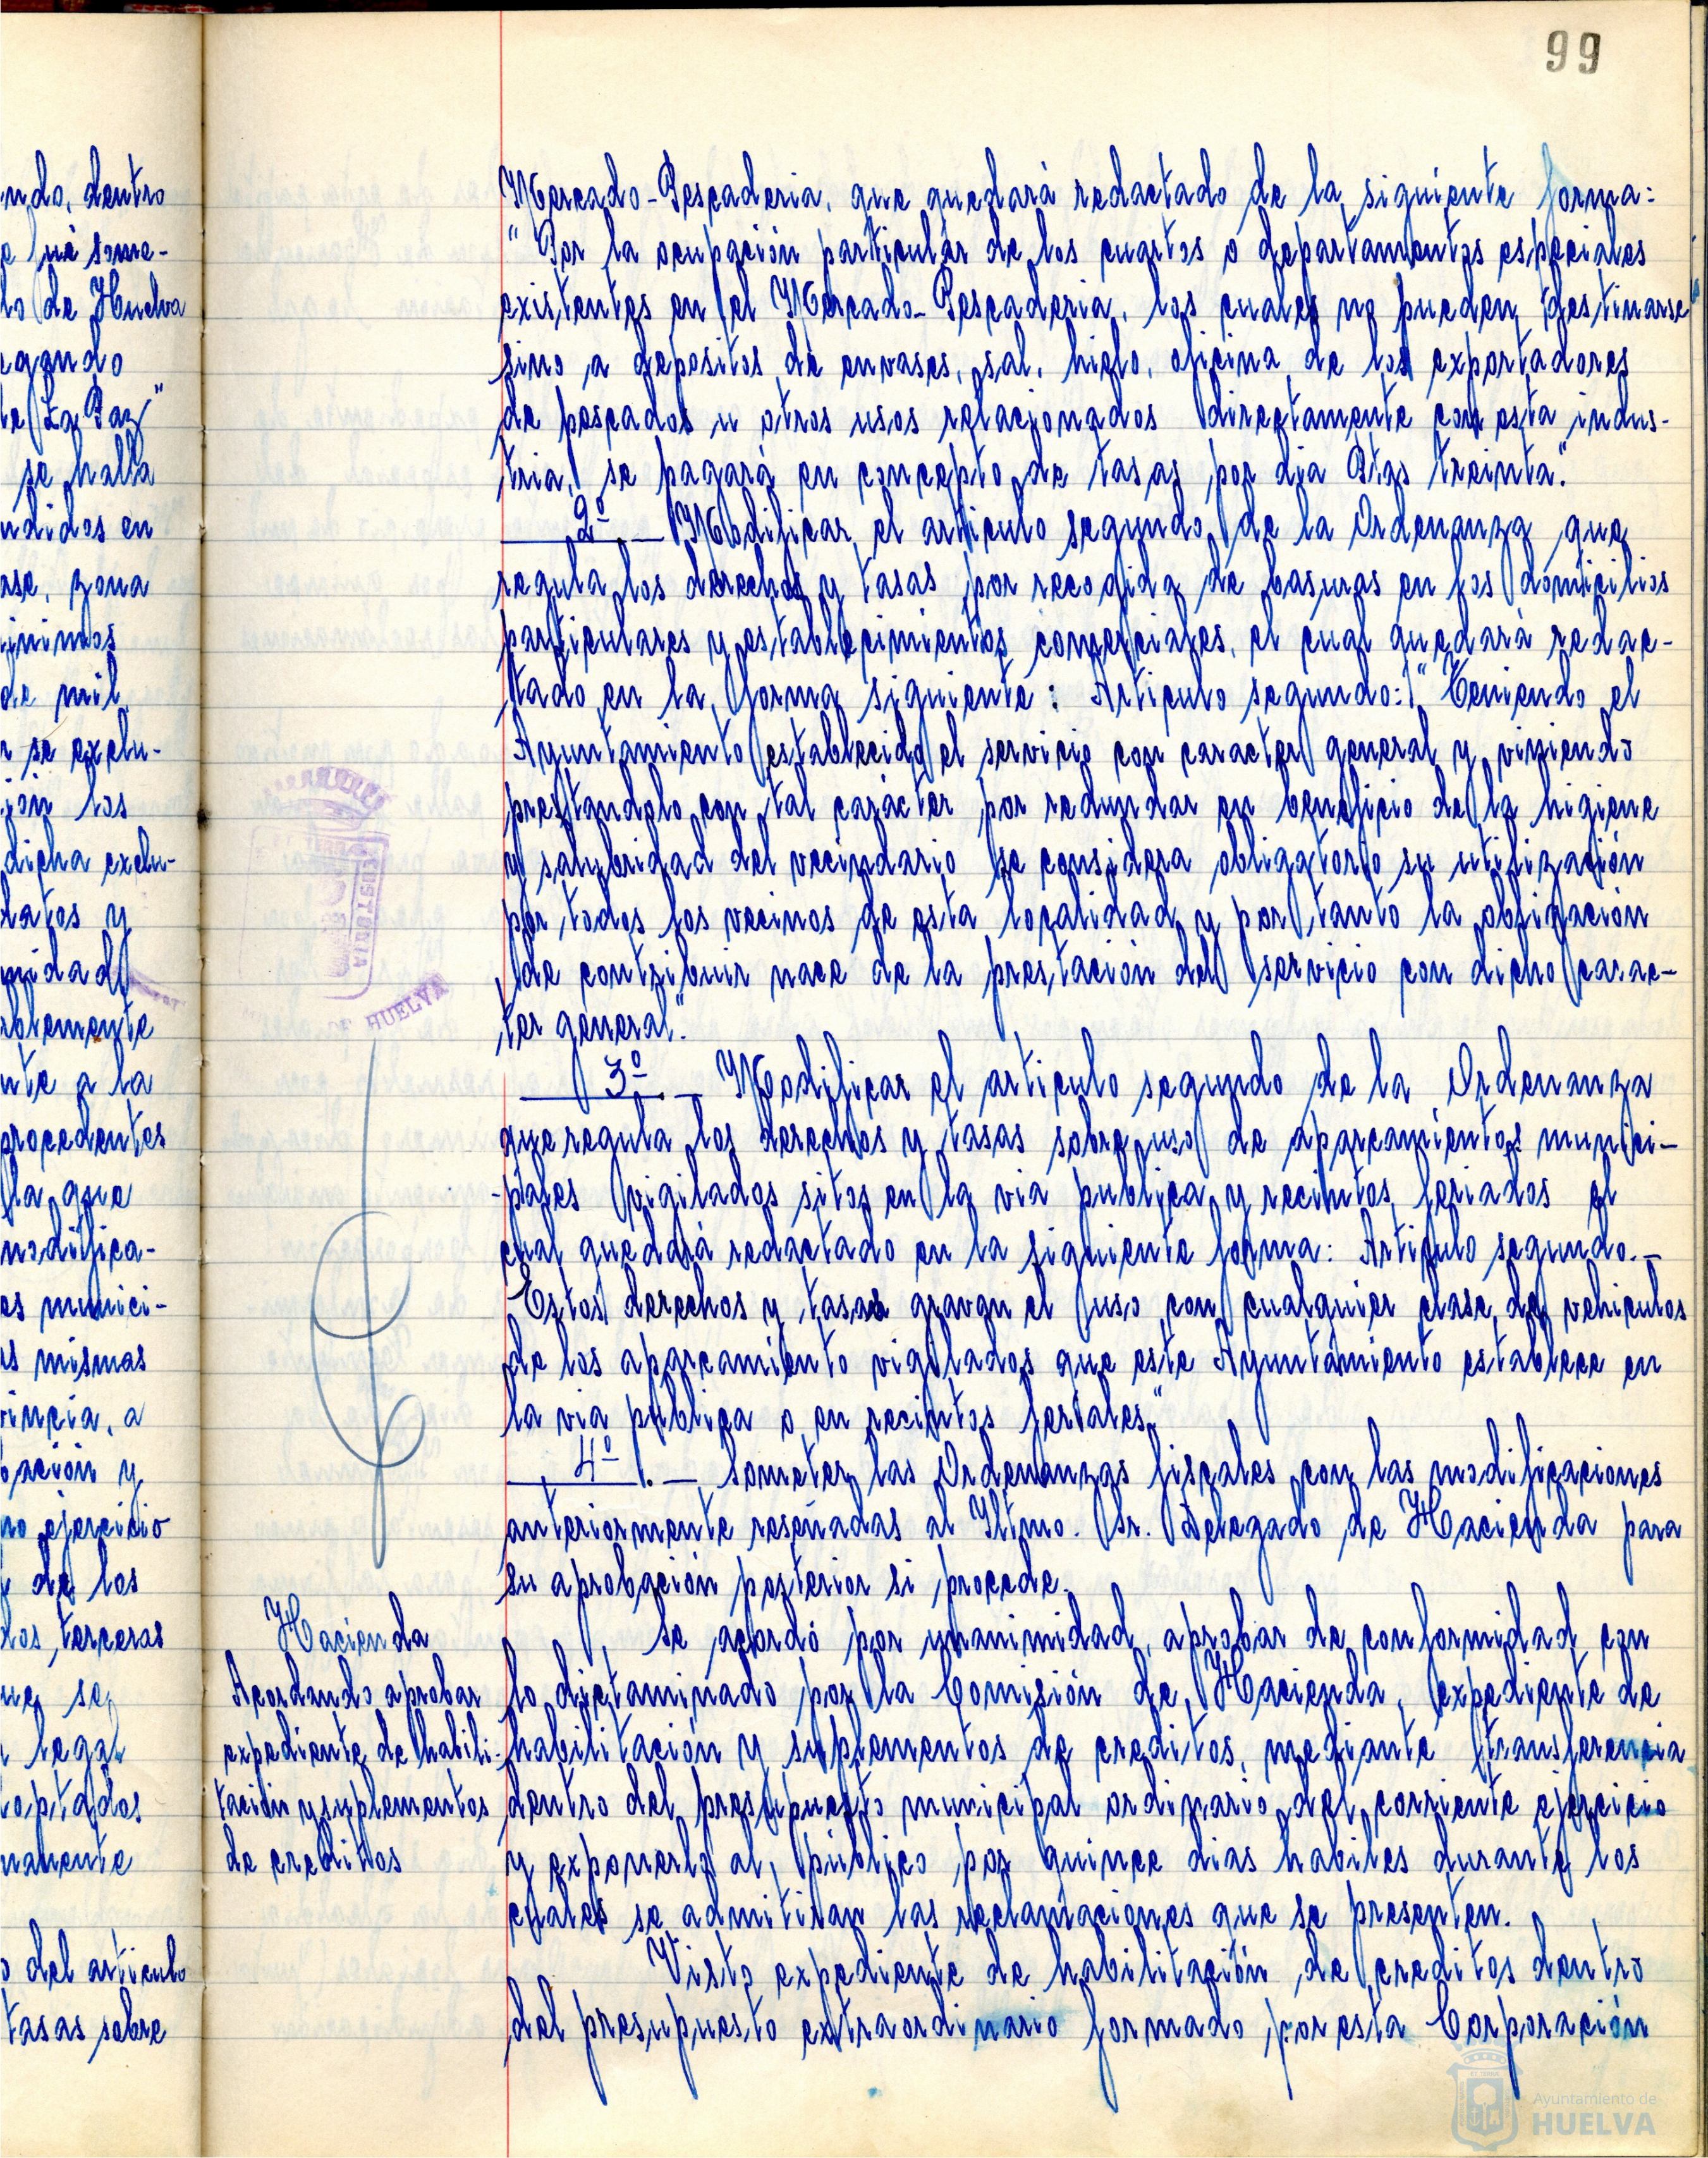 99
ndo, dentro
e fué some-
lo de Huelva
gundo
te La Paz"
se halla
ndidos en
ase, zona
inimos
de mil
r se exclu-
ión los
dicha exclu-
datos y
midad
ablemente
nte a la
procedentes
la que
modifica-
es munici-
as mismas
vincia, a
bación y
mo ejercicio
y de los
dos, terceras
ue se
legal
optados
namente
o del articulo
tasas sobre
Mercado-Pescaderia, que quedará redactado de la siguiente forma:
"Por la ocupación particular de los cuartos o departamentos especiales
existentes en el Mercado-Pescaderia, los cuales no pueden destinarse
sino a depositos de envases, sal, hielo, oficina de los exportadores
de pescados u otros usos relacionados directamente con esta indus-
tria, se pagará en concepto de tasas por dia Ptas treinta."
2º.— Modificar el articulo segundo de la Ordenanza que
regula los derechos y tasas por recogida de basuras en los domicilios
particulares y establecimientos comerciales, el cual quedará redac-
tado en la forma siguiente: Articulo segundo: "Teniendo el
Ayuntamiento establecido el servicio con caracter general y viniendo
prestandolo con tal carácter por redundar en beneficio de la higiene
y salubridad del vecindario se considera obligatorio su utilización
por todos los vecinos de esta localidad y por tanto la obligación
de contribuir nace de la prestación del servicio con dicho carac-
ter general."
3º.— Modificar el articulo segundo de la Ordenanza
que regula los derechos y tasas sobre uso de aparcamientos munici-
pales vigilados sitos en la via publica y recintos feriados el
cual quedará redactado en la siguiente forma: Articulo segundo.—
Estos derechos y tasas gravan el uso con cualquier clase de vehiculos
de los aparcamiento vigilados que este Ayuntamiento establece en
la via publica o en recintos feriales."
4º.— Someter las Ordenanzas fiscales con las modificaciones
anteriormente reseñadas al Iltmo. Sr. Delegado de Hacienda para
su aprobación posterior si procede.
Hacienda
Acordando aprobar
expediente de habili-
tación y suplementos
de creditos
Se acordó por unanimidad, aprobar de conformidad con
lo dictaminado por la Comisión de Hacienda, expediente de
habilitación y suplementos de creditos, mediante transferencia
dentro del presupuesto municipal ordinario del corriente ejercicio
y exponerlo al público por quince dias habiles durante los
cuales se admitiran las reclamaciones que se presenten.
Visto expediente de habilitación de creditos dentro
del presupuesto extraordinario formado por esta Corporación
CUSTODIA
HUELVA
Ayuntamiento de
HUELVA